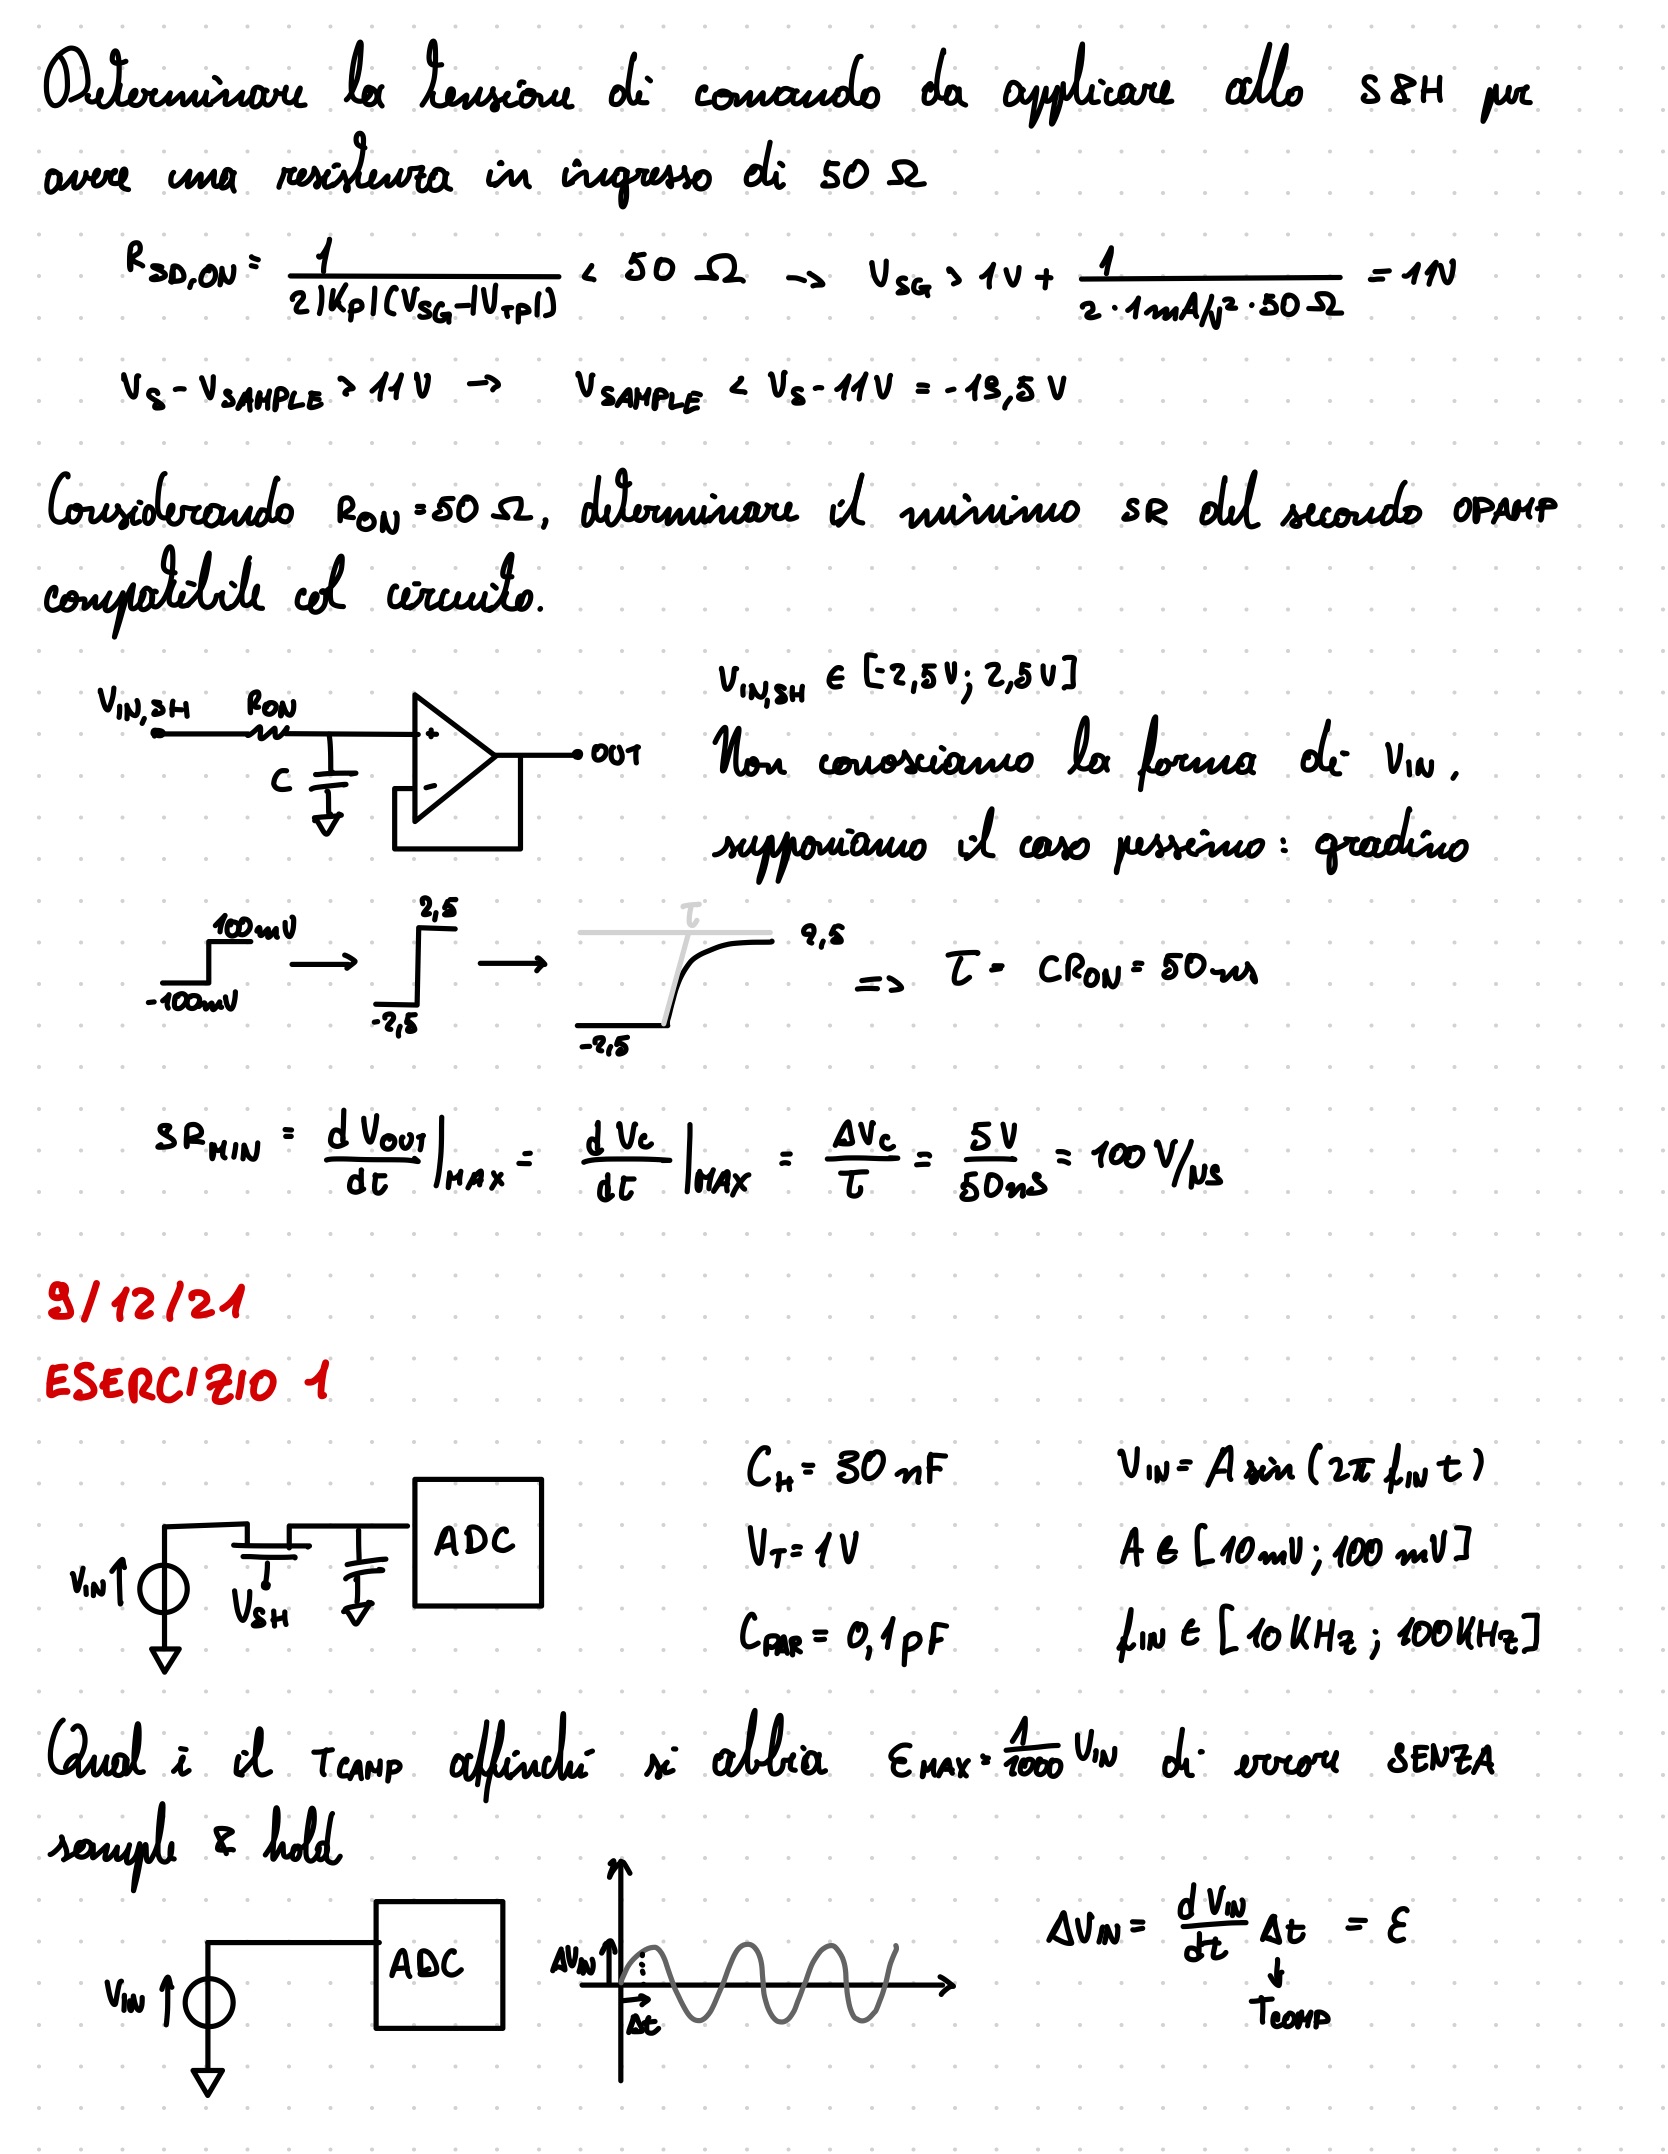 Determinare la tensione di comando da applicare allo S&H per
avere una resistenza in ingresso di 50 Ω
R_SD,ON = 1 / (2|K_P|(V_SG-|V_TP|)) < 50 Ω -> V_SG > 1V + 1 / (2 · 1mA/V² · 50 Ω) = 11V
V_S - V_SAMPLE > 11V -> V_SAMPLE < V_S - 11V = -13,5 V
Considerando R_ON = 50 Ω, determinare il minimo SR del secondo OPAMP
compatibile col circuito.
V_IN,SH R_ON + - C OUT
V_IN,SH ∈ [-2,5V; 2,5V]
Non conosciamo la forma di V_IN,
supponiamo il caso pessimo: gradino
-100mV 100mV -> -2,5 2,5 -> -2,5 τ 2,5 => τ = CR_ON = 50ns
SR_MIN = dV_OUT/dt |_MAX = dV_C/dt |_MAX = ΔV_C/τ = 5V/50ns = 100 V/μs
9/12/21
ESERCIZIO 1
V_IN V_SH ADC
C_H = 30 nF V_IN = A sin (2π f_IN t)
V_T = 1V A ∈ [10mV; 100 mV]
C_PAR = 0,1pF f_IN ∈ [10 KHz; 100KHz]
Qual è il T_CAMP affinché si abbia ε_MAX = 1/1000 V_IN di errore SENZA
sample & hold
V_IN ADC
ΔV_IN Δt
ΔV_IN = dV_IN/dt Δt = ε
↓
T_COMP